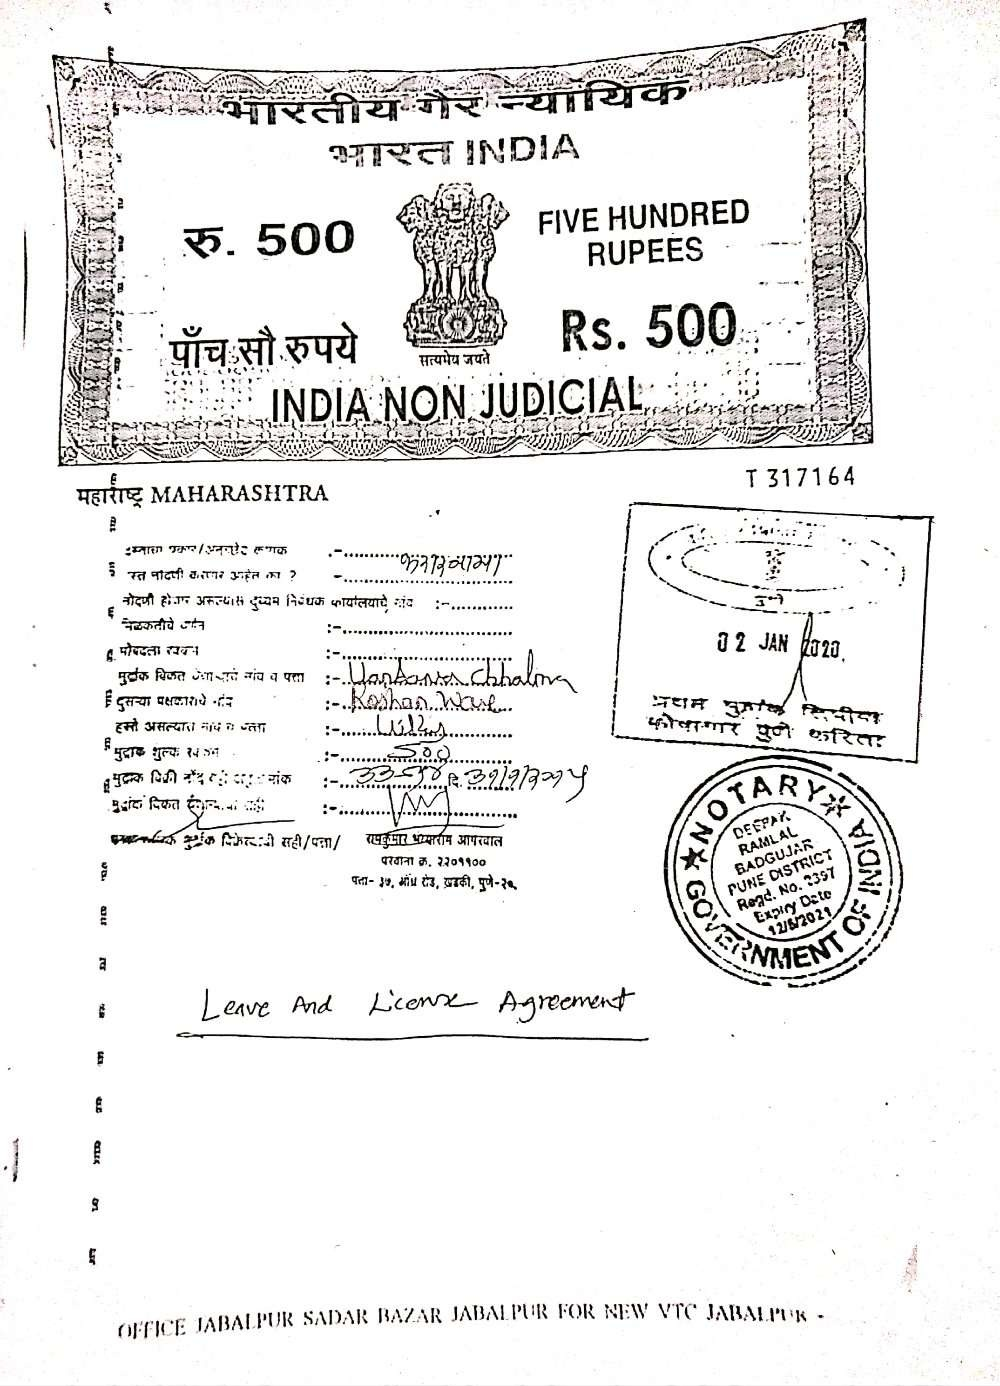 भारतीय गैर न्यायिक
भारत INDIA
रु. 500
FIVE HUNDRED
RUPEES
पाँच सौ रुपये
Rs. 500
सत्यमेव जयते
INDIA NON JUDICIAL
महाराष्ट्र MAHARASHTRA
T 317164
करारनामा
नोंदणी होणार असल्यास दुय्यम निबंधक कार्यालयाचे नांव :-
मिळकतीचे वर्णन :-
मोबदला रक्कम :-
मुद्रांक विकत घेणाऱ्याचे नांव व पत्ता :-
दुसऱ्या पक्षकाराचे नांव :- Roshan Ware
हस्ते असल्यास नांव व पत्ता :-
मुद्रांक शुल्क रक्कम :- 500
मुद्रांक विक्री नोंद वही अनु क्रमांक :-
मुद्रांक विकत घेणाऱ्याची सही :-
मुद्रांक विक्रेत्याची सही/पत्ता/
राजकुमार आगरवाल
परवाना क्र. २२०११००
पत्ता- ३७, औंध रोड, खडकी, पुणे-२०.
पुणे
02 JAN 2020.
प्रथम मुद्रांक लिपीक
कोषागार पुणे करिता
NOTARY
DEEPAK
RAMLAL
BADGUJAR
PUNE DISTRICT
Regd. No. 2397
Expiry Date
12/6/2021
GOVERNMENT OF INDIA
Leave And License Agreement
OFFICE JABALPUR SADAR BAZAR JABALPUR FOR NEW VTC JABALPUR -